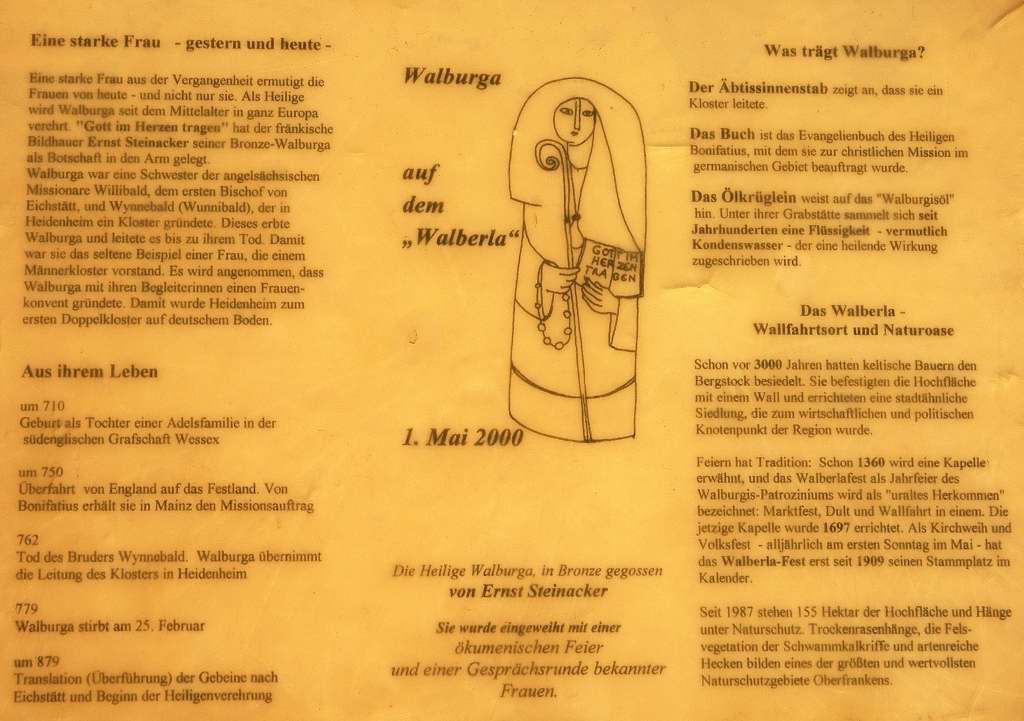 Eine starke Frau - gestern und heute -
Eine starke Frau aus der Vergangenheit ermutigt die
Frauen von heute - und nicht nur sie. Als Heilige
wird Walburga seit dem Mittelalter in ganz Europa
verehrt. "Gott im Herzen tragen" hat der fränkische
Bildhauer Ernst Steinacker seiner Bronze-Walburga
als Botschaft in den Arm gelegt.
Walburga war eine Schwester der angelsächsischen
Missionare Willibald, dem ersten Bischof von
Eichstätt, und Wynnebald (Wunnibald), der in
Heidenheim ein Kloster gründete. Dieses erbte
Walburga und leitete es bis zu ihrem Tod. Damit
war sie das seltene Beispiel einer Frau, die einem
Männerkloster vorstand. Es wird angenommen, dass
Walburga mit ihren Begleiterinnen einen Frauen-
konvent gründete. Damit wurde Heidenheim zum
ersten Doppelkloster auf deutschem Boden.
Aus ihrem Leben
um 710
Geburt als Tochter einer Adelsfamilie in der
südenglischen Grafschaft Wessex
um 750
Überfahrt von England auf das Festland. Von
Bonifatius erhält sie in Mainz den Missionsauftrag
762
Tod des Bruders Wynnebald. Walburga übernimmt
die Leitung des Klosters in Heidenheim
779
Walburga stirbt am 25. Februar
um 879
Translation (Überführung) der Gebeine nach
Eichstätt und Beginn der Heiligenverehrung
Walburga
auf
dem
„Walberla“
GOTT IM
HERZEN
TRAGEN
1. Mai 2000
Die Heilige Walburga, in Bronze gegossen
von Ernst Steinacker
Sie wurde eingeweiht mit einer
ökumenischen Feier
und einer Gesprächsrunde bekannter
Frauen.
Was trägt Walburga?
Der Äbtissinnenstab zeigt an, dass sie ein
Kloster leitete.
Das Buch ist das Evangelienbuch des Heiligen
Bonifatius, mit dem sie zur christlichen Mission im
germanischen Gebiet beauftragt wurde.
Das Ölkrüglein weist auf das "Walburgisöl"
hin. Unter ihrer Grabstätte sammelt sich seit
Jahrhunderten eine Flüssigkeit - vermutlich
Kondenswasser - der eine heilende Wirkung
zugeschrieben wird.
Das Walberla -
Wallfahrtsort und Naturoase
Schon vor 3000 Jahren hatten keltische Bauern den
Bergstock besiedelt. Sie befestigten die Hochfläche
mit einem Wall und errichteten eine stadtähnliche
Siedlung, die zum wirtschaftlichen und politischen
Knotenpunkt der Region wurde.
Feiern hat Tradition: Schon 1360 wird eine Kapelle
erwähnt, und das Walberlafest als Jahrfeier des
Walburgis-Patroziniums wird als "uraltes Herkommen"
bezeichnet: Marktfest, Dult und Wallfahrt in einem. Die
jetzige Kapelle wurde 1697 errichtet. Als Kirchweih und
Volksfest - alljährlich am ersten Sonntag im Mai - hat
das Walberla-Fest erst seit 1909 seinen Stammplatz im
Kalender.
Seit 1987 stehen 155 Hektar der Hochfläche und Hänge
unter Naturschutz. Trockenrasenhänge, die Fels-
vegetation der Schwammkalkriffe und artenreiche
Hecken bilden eines der größten und wertvollsten
Naturschutzgebiete Oberfrankens.